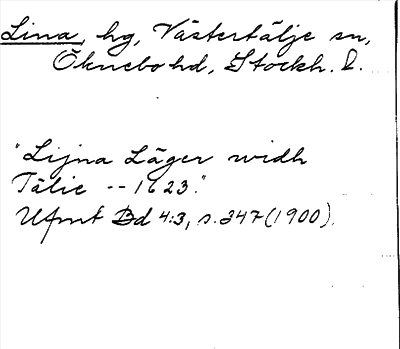 Lina, hg, Västertälje sn,
Öknebo hd, Stockh. l.
"Lijna Läger widh
Tälie -- 1623."
Ufmt Bd 4:3, s. 247 (1900).